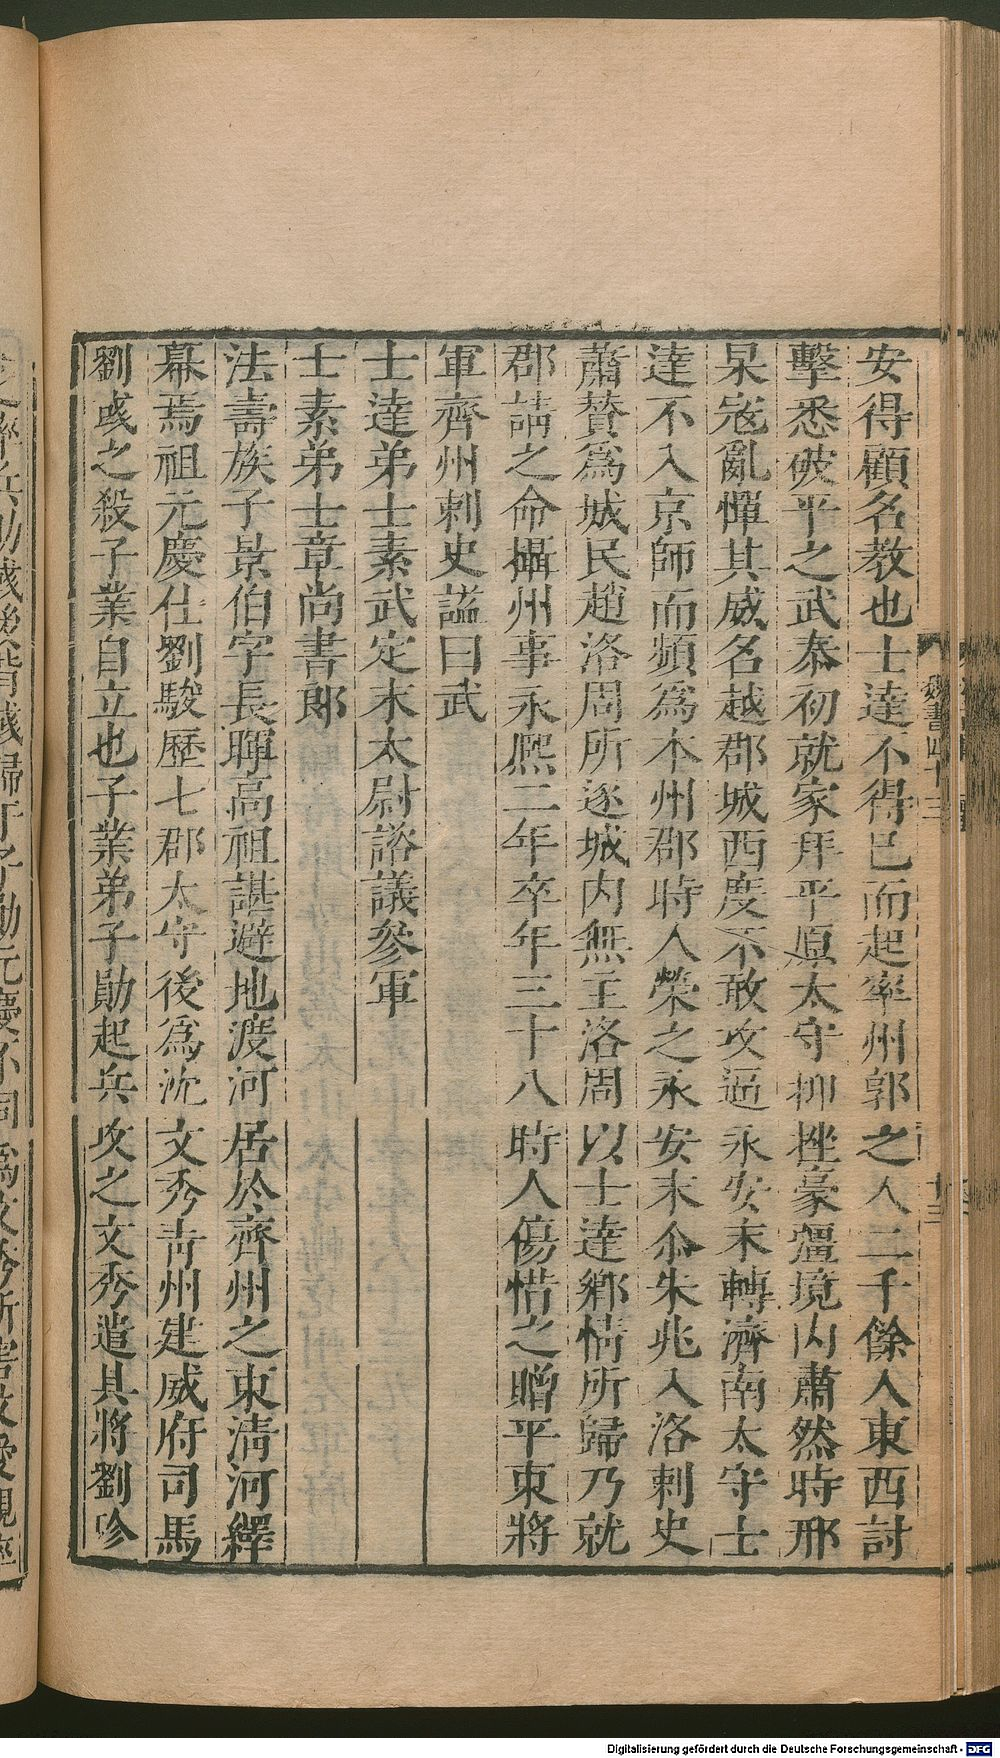 安得顧名教也士達不得已而起率州郭之人二千餘人東西討
擊悉破平之武泰初就家拜平原太守抑挫豪彊境內肅然時邢
杲寇亂憚其威名越郡城西度不敢攻逼永安末轉濟南太守士
達不入京師而頻爲本州郡時人榮之永安末尒朱兆入洛刺史
蕭贊爲城民趙洛周所逐城內無主洛周以士達鄉情所歸乃就
郡請之命攝州事永熙二年卒年三十八時人傷惜之贈平東將
軍齊州刺史謚曰武
士達弟士素武定末太尉諮議參軍
士素弟士章尚書郎
法壽族子景伯字長暉高祖諶避地渡河居於齊州之東清河繹
幕焉祖元慶仕劉駿歷七郡太守後爲沈文秀青州建威府司馬
劉彧之殺子業自立也子業弟子勛起兵攻之文秀遣其將劉珍
魏書四十三
十三
Digitalisierung gefördert durch die Deutsche Forschungsgemeinschaft - DFG